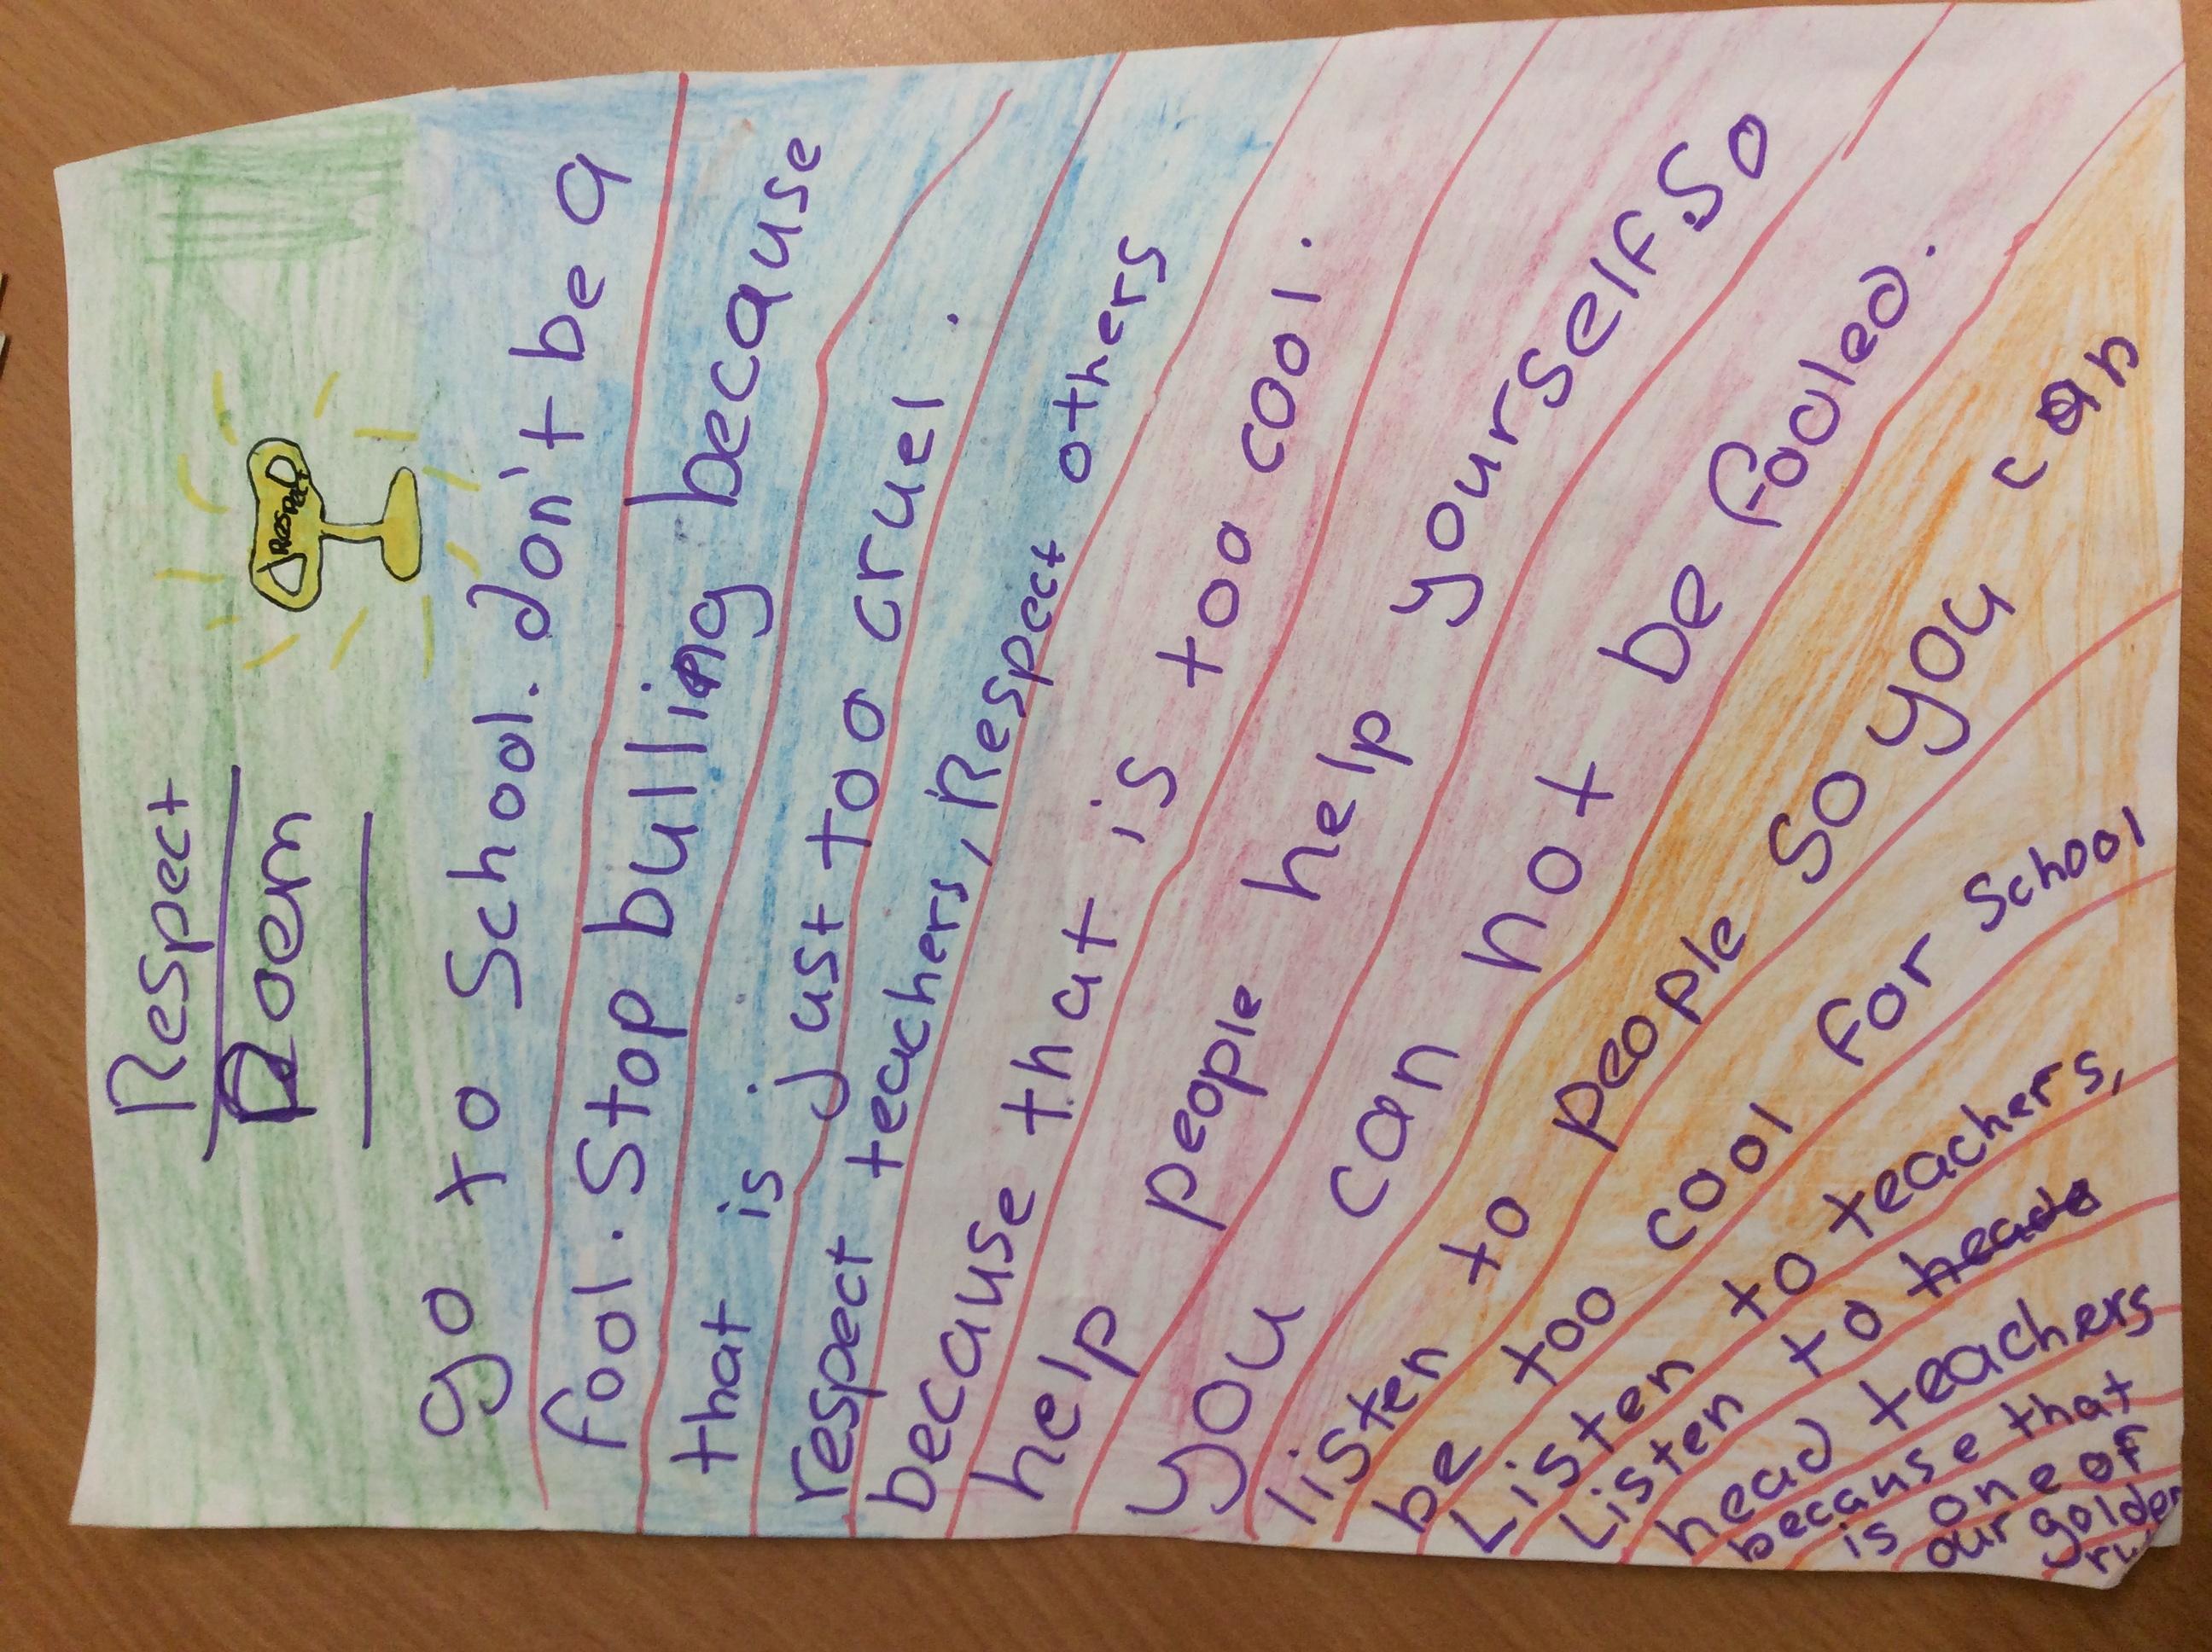 Respect
Poem
Respect
go to School. don't be a
fool. Stop bulling because
that is just too cruel.
respect teachers, Respect others
because that is too cool.
help people help yourself so
you can not be fooled.
listen to people so you can
be too cool for School
Listen to teachers,
Listen to
head teachers
because that
is one of
our golden